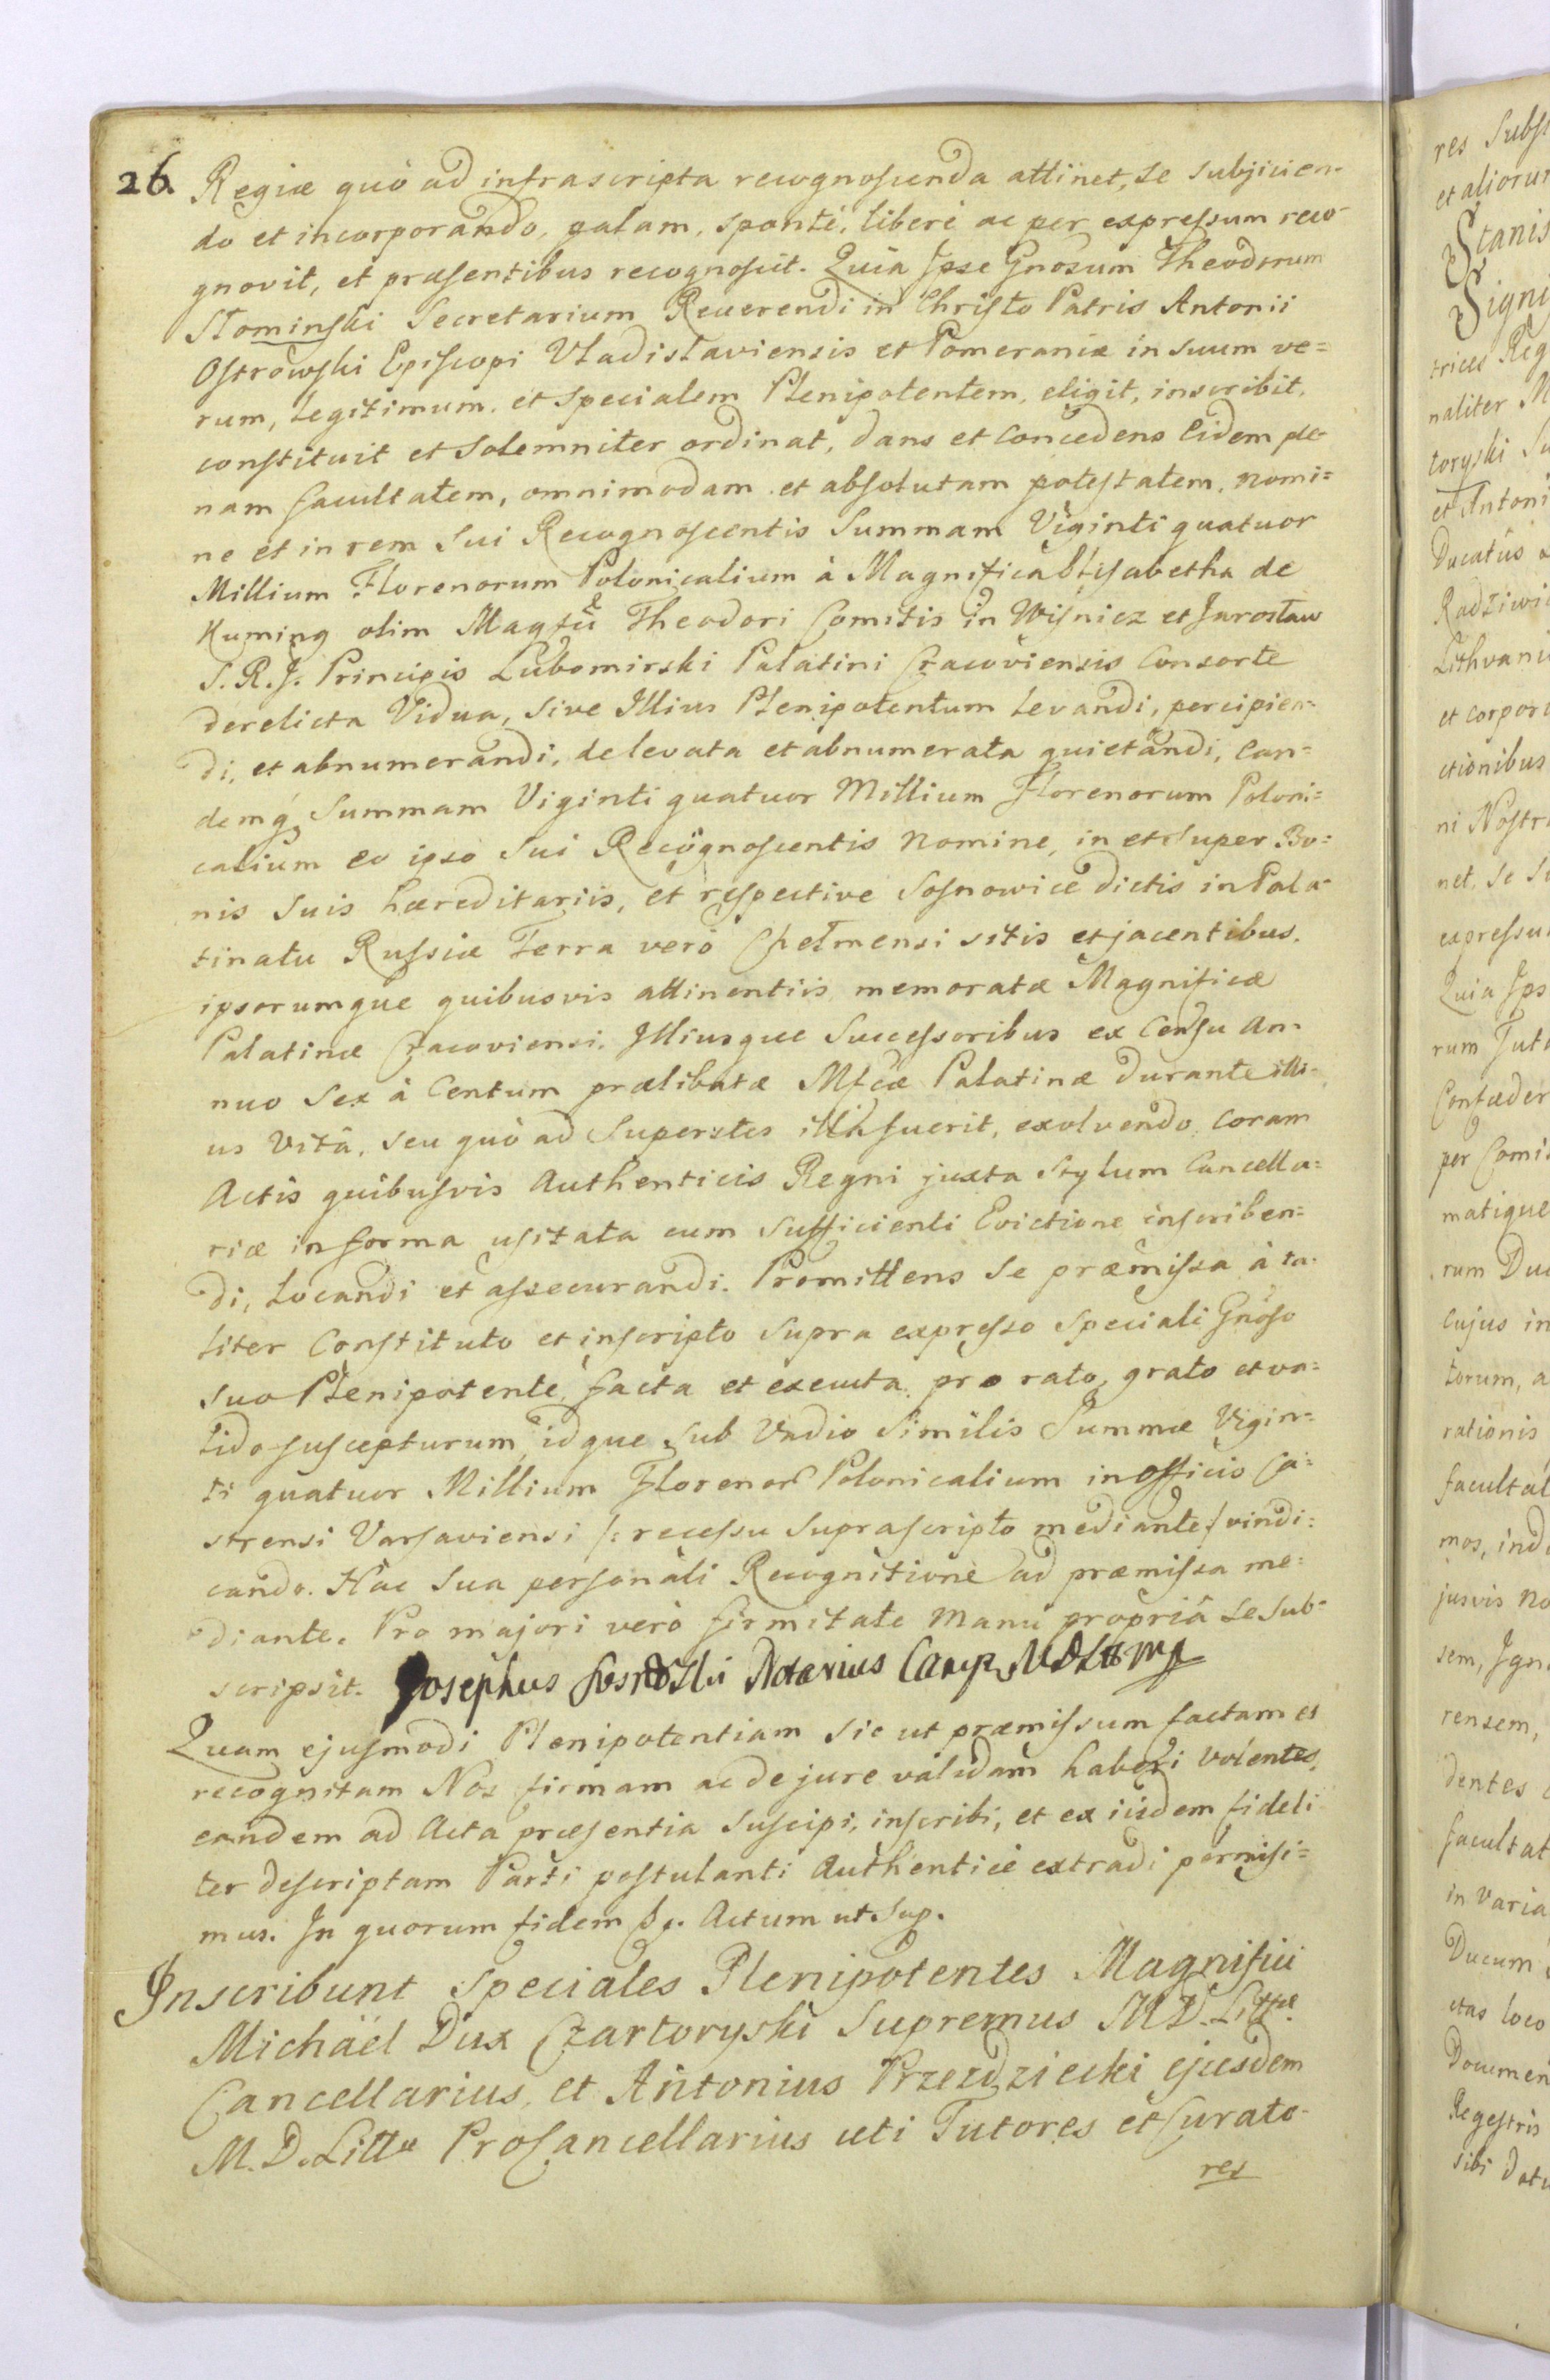 26. Regiæ quò ad infrascripta recognoscenda attinet, se subjicien-
do et incorporando, palam, sponté, liberé ac per expressum reco-
gnovit, et præsentibus recognoscit. Quia Ipse Gnosum Theodorum
Słominski Secretarium Reuerendi in Christo Patris Antonii
Ostrowski Episcopi Vladislaviensis et Pomeraniæ in suum ve=
rum, Legitimum, et Specialem Plenipotentem, eligit, inscribit,
constituit et Solemniter ordinat, dans et Concedens Eidem ple-
nam facultatem, omnimodam et absolutam potestatem, nomi=
ne et in rem Sui Recognoscentis Summam Viginti quatuor
Millium Florenorum Polonicalium à Magnifica Elisabetha de
Kuming olim Magfci Theodori Comitis in Wisnicz et Jarosław
S.R.J. Principis Lubomirski Palatini Cracoviensis Consorte
derelicta Vidua, Sive Illius Plenipotentum Levandi, percipien-
di, et abnumerandi, de levata et abnumerata quietandi, Ean=
demq3 Summam Viginti quatuor Millium Florenorum Poloni=
calium eo ipso Sui Recognoscentis Nomine, in et Super Bo=
nis Suis hæreditariis, et respective Sosnowice dictis in Pala-
tinatu Russiæ Terra verò Chełmensi sitis et jacentibus,
ipsorumque quibusvis attinentiis memoratæ Magnificæ
Palatinæ Cracoviensi, Illiusque Successoribus ex Censu An-
nuo Sex à Centum prælibatæ Mfcæ Palatinæ durante illi-
us Vitâ, seu quò ad Superstes illa fuerit, exolvendo, coram
Actis quibusvis Authenticis Regni juxta Stylum Cancella=
riæ in forma usitata cum Sufficienti Evictione inscriben=
di, Locandi et assecurandi. Promittens Se præmissa à ta-
liter Constituto et inscripto Supra expresso Speciali Gnoso
suo Plenipotente, facta et executa pro rato, grato et va=
lido suscepturum, idque sub Vadio Similis Summæ Vigin=
ti quatuor Millium Florenor Polonicalium in officio Ca=
strensi Varsaviensi /: recessu Suprascripto mediante / vindi=
cando. Hâc Sua personali Recognitione ad præmissa me=
diante. Pro majori verò firmitate Manu propriâ se sub=
scripsit. Josephus Sosnoski Notarius Camp. MDL mp
Quam ejusmodi Plenipotentiam Sic ut præmissum factam et
recognitam Nos firmam ac de jure validam haberi Volentes,
eandem ad Acta præsentia Suscipi, inscribi, et ex iisdem fideli
ter descriptam Parti postulanti Authenticé extradi permisi=
mus. In quorum fidem &. Actum ut Sup.
Inscribunt Speciales Plenipotentes Magnifici
Michäel Dux Czartoryski Supremus M.D. Littæ
Cancellarius, et Antonius Przezdziecki ejusdem
M.D. Littæ ProCancellarius uti Tutores et Curato-
res
res Subs
et aliorum
Stanis
Signi
trices Reg
naliter M
toryski Su
et Antoni
Ducatûs
Radziwi
Lithvani
et corpor
ctionibus
ni Nostr
net, Se S
expressu
Quia Ips
rum Tuto
Confæder
per Comi
matique
rum Duc
Cujus in
torum, a
rationis
facultat
mos, ind
jusvis No
sem, Ign
rensem,
dentes
facultat
in varia
Ducum
ctas loco
Documen
Regestris
sibi datu